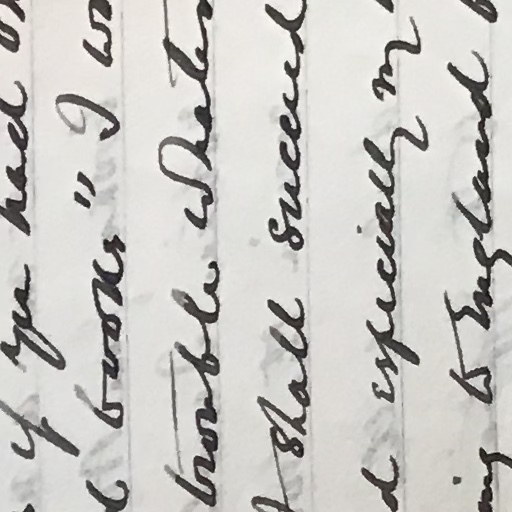 if you had
books" I
trouble
I shall succeed
especially my
to England